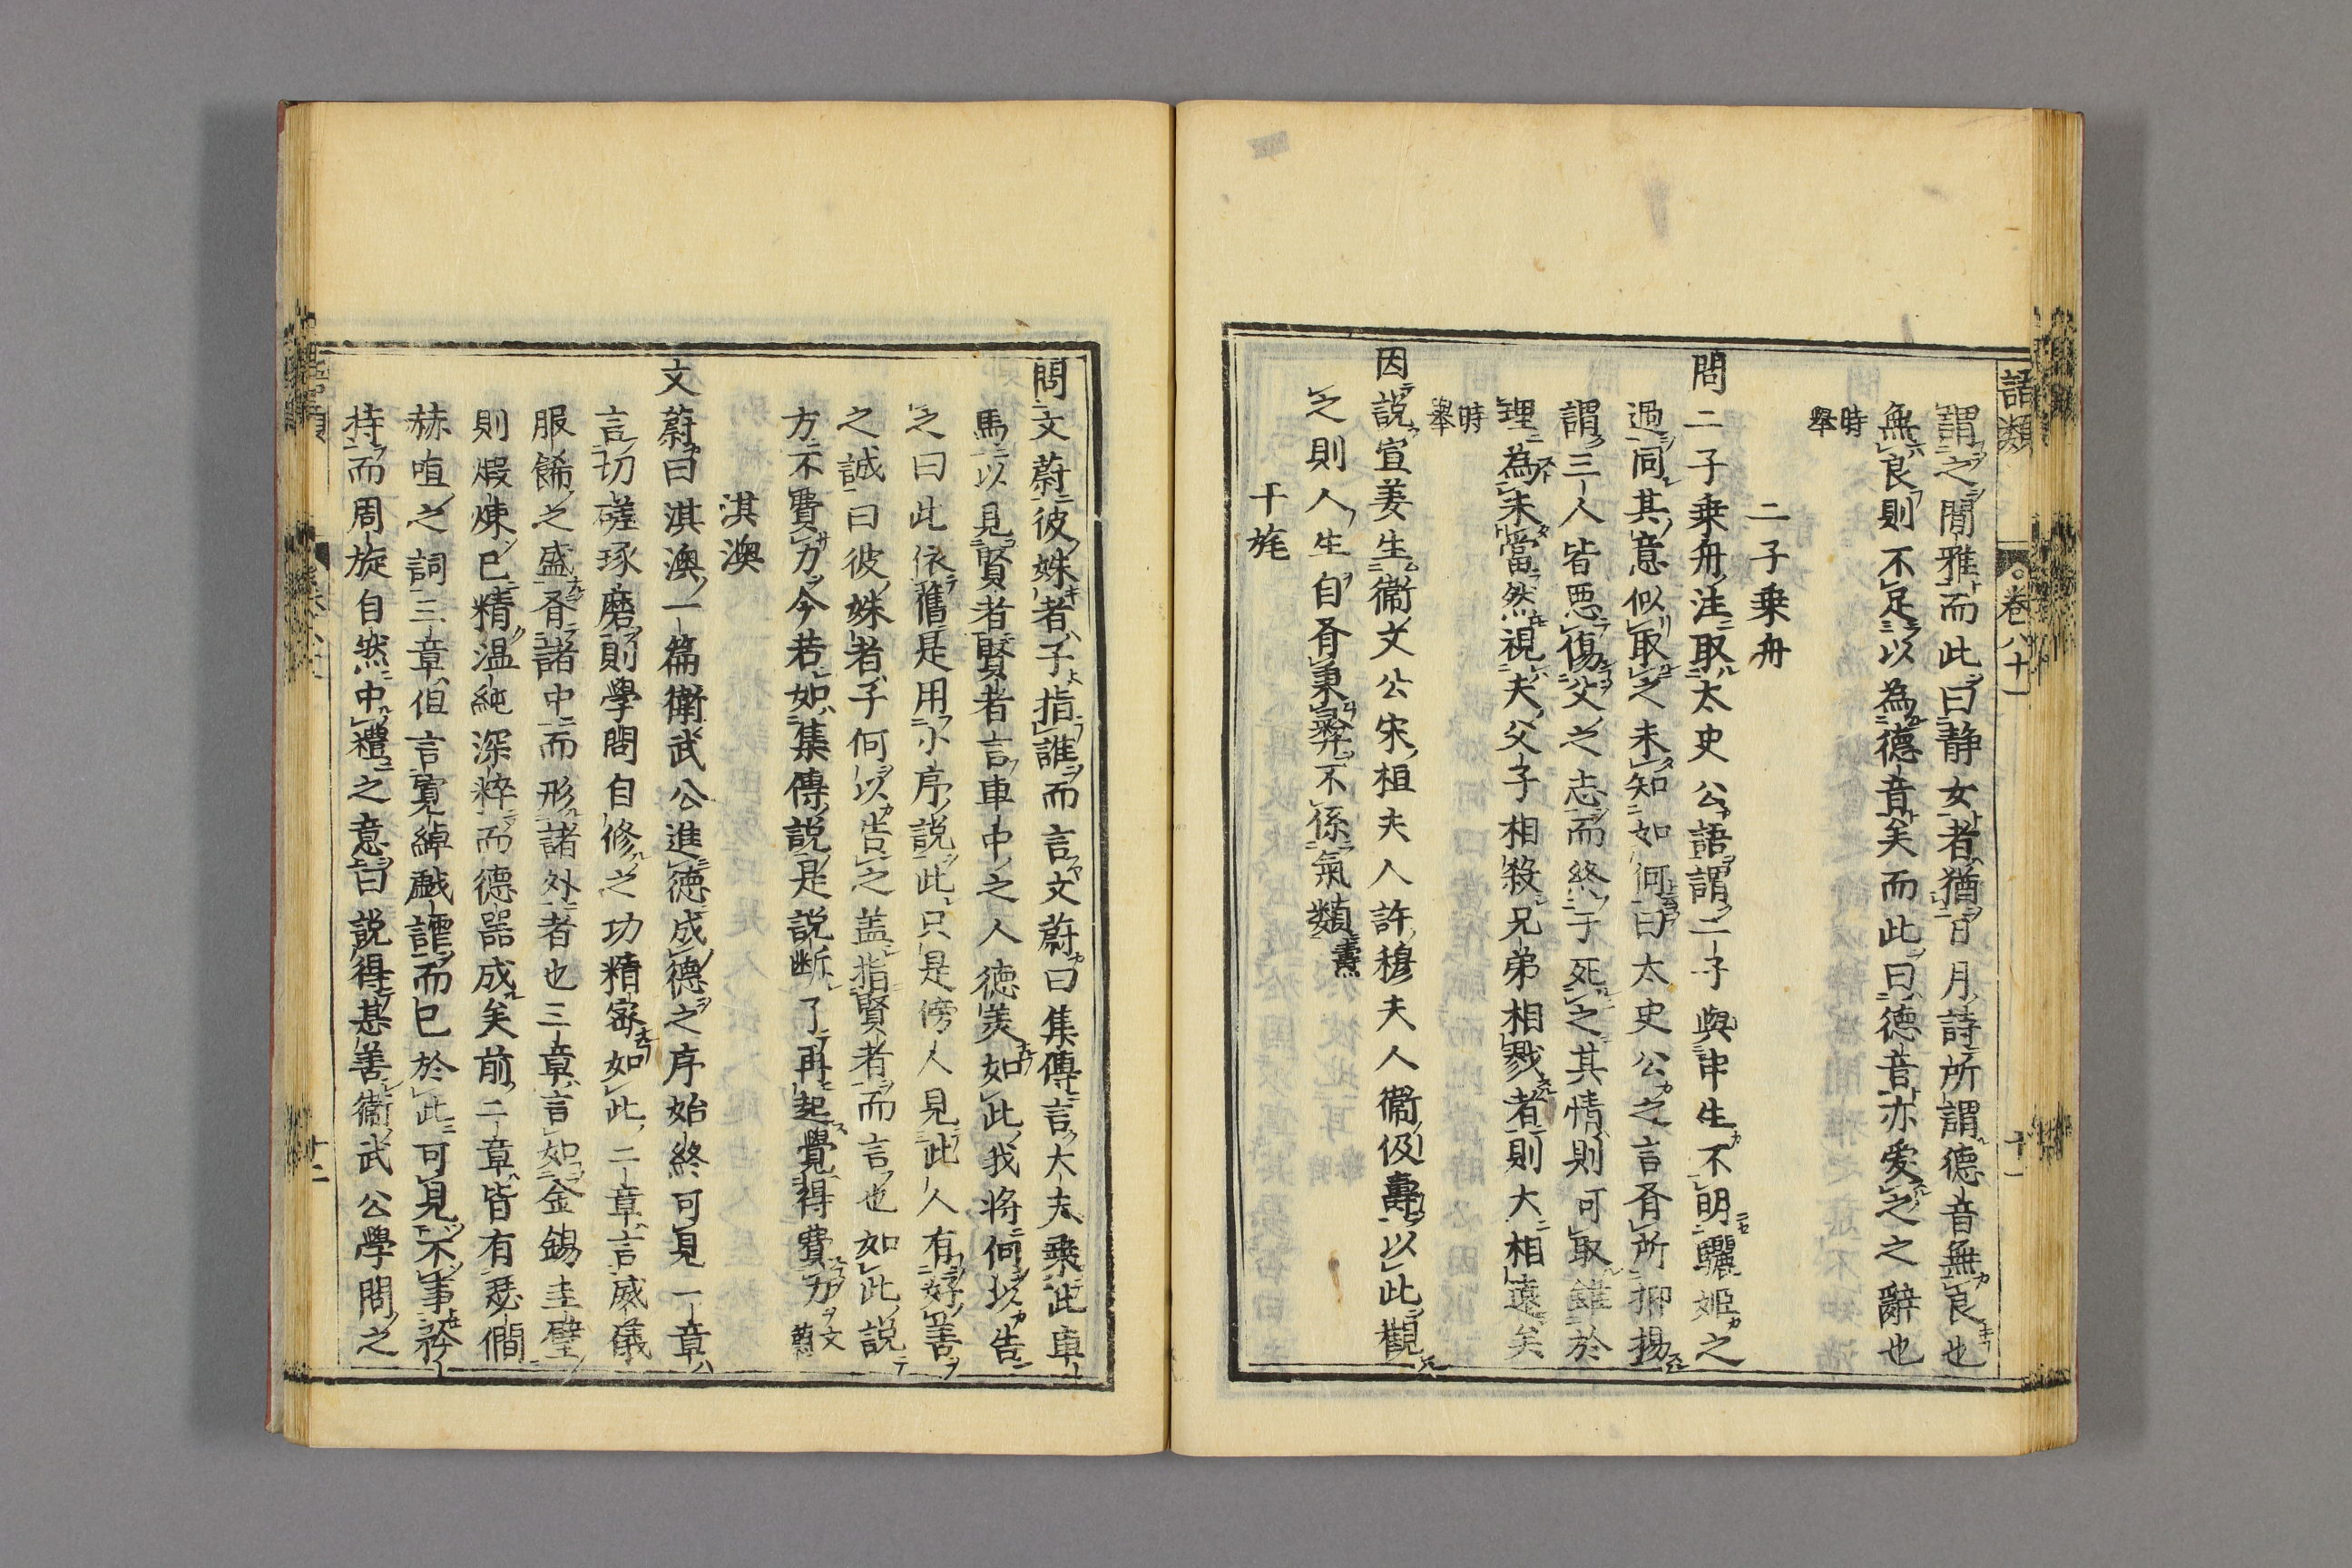 語類
卷八十一
十一
謂之間雅而此曰静女者猶日月詩所謂德音無良也
無良則不足以為德音矣而此曰德音亦愛之之辭也
時舉
二子乗舟
問二子乗舟注取太史公語謂二子與申生不明驪姬之
過同其意似取之未知如何曰太史公之言有所抑揚
謂三人皆惡傷父之志而終于死之其情則可取雖於
理為未當然視夫父子相殺兄弟相戮者則大相遠矣
時舉
因說宣姜生衞文公宋桓夫人許穆夫人衞伋壽以此觀
之則人生自有秉彝不係氣類燾
干旄
問文蔚彼姝者子指誰而言文蔚曰集傳言大夫乗此車
馬以見賢者賢者言車中之人德美如此我將何以告
之曰此依舊是用小序說此只是傍人見此人有好善
之誠曰彼姝者子何以告之盖指賢者而言也如此說
方不費力今若如集傳說是說断了再起覺得費力文蔚
淇澳
文蔚曰淇澳一篇衞武公進德成德之序始終可見一章
言切磋琢磨則學問自修之功精密如此二章言威儀
服餙之盛有諸中而形諸外者也三章言如金錫圭璧
則煅煉已精温純深粹而德器成矣前二章皆有瑟僴
赫咺之詞三章但言寛綽戯謔而已於此可見不事矜
持而周旋自然中禮之意曰說得甚善衞武公學問之
十二